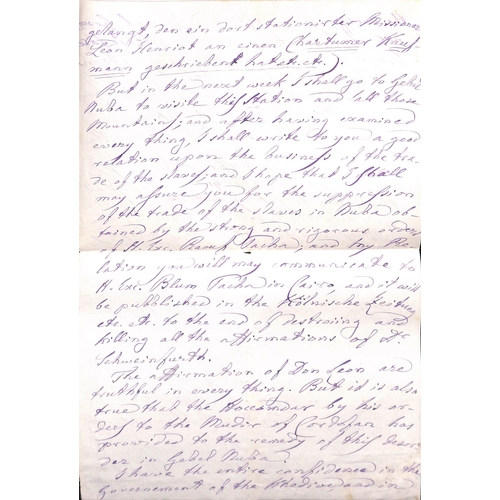 gelangt, den ein dort stationirter Missionar
Leon Henriot an einen Chartumer Kauf-
mann geschrieben hat etc. etc.).
But in the next week I shall go to Gebel
Nuba to visite this Station and all those
Mountains; and after having examined
every thing, I shall write to you a good
relation upon the business of the tra-
de of the slaves; and I hope that I shall
may assure you for the suppression
of the trade of the slaves in Nuba ob-
tained by the strong and rigorous orders
of H. Exc. Raouf Pacha; and my Re-
lation you will may communicate to
H. Exc. Blum Pacha in Cairo, and it will
be pubblished in the Kölnische Zeitung
etc. etc. to the end of destroiing and
killing all the affirmations of Dr.
Schweinfurth.
The affirmation of Don Leon are
truthful in every thing. But it is also
true that the Hoccomdar by his or-
ders to the Mudir of Cordofan has
provided to the remedy of this desor-
der in Gebel Nuba.
I have the entire confidence in the
Governement of the Khedive and in